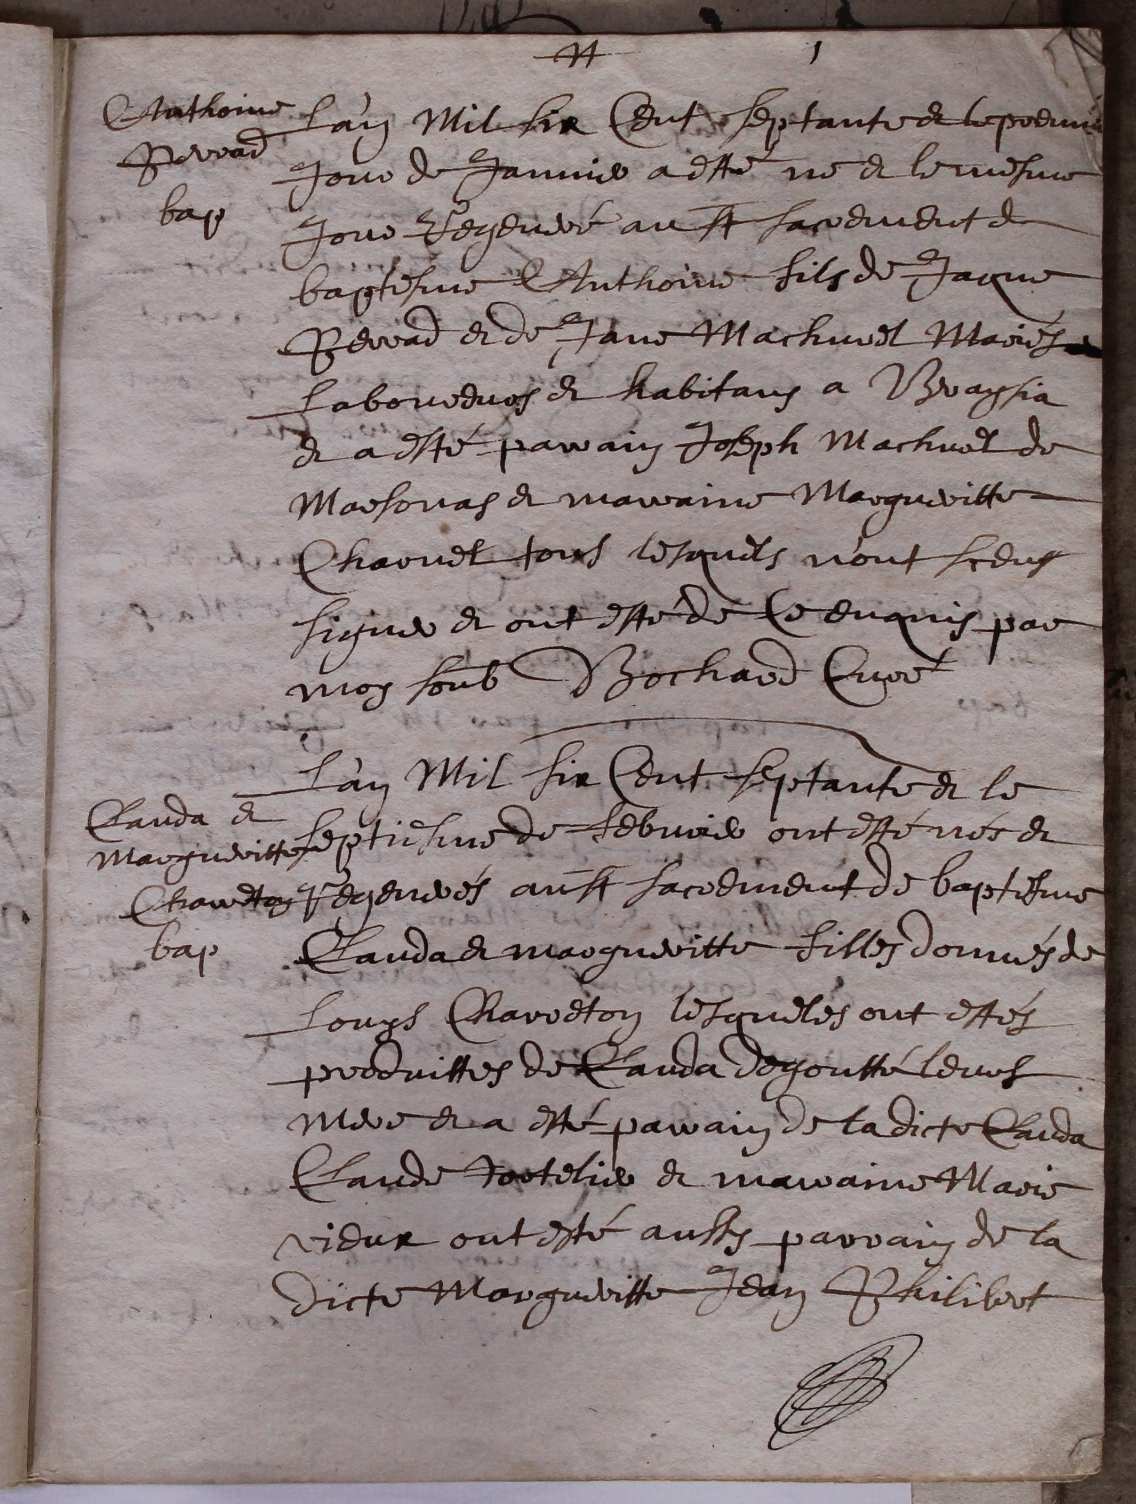 1
Anthoine
Perrad
bap
L'an Mil six Cent septante et le premier
Jour de Januier a esté né et le mesme
Jour Regeneré au st sacrement de
baptesme Anthoine fils de Jaque
Perrad et de Jane Machurel Mariés
Laboureurs et habitans a Bragsia
et a esté parrain Joseph Machurel de
Marsonas et marraine Margueritte
Charuel tous lesquels n'ont sceus
signer et ont esté de Ce enquis par
moy soub Bochard Curé
L'an Mil six Cent septante et le
Clauda et
Margueritte
Charreton
bap
septiesme de febvrier ont esté nés et
Regenerés au st sacrement de baptesme
Clauda et margueritte filles donnés de
Louys Charreton lesqueles ont estés
produittes de Clauda degoutté leurs
Mere et a esté parrain de la dicte Clauda
Claude tortelier et marraine Marie
vieux ont esté aussy parrain de la
dicte Margueritte Jean Philibert